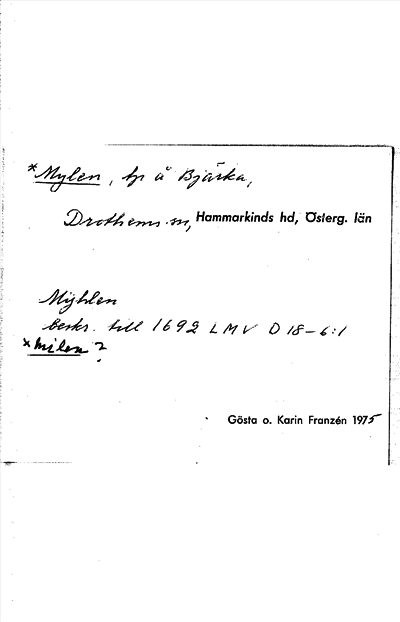 *Mylen, tp å Bjärka,
Drothems sn, Hammarkinds hd, Österg. län
Mÿhlen
beskr. till 1692 LMV D 18-6:1
*Milen?
Gösta o. Karin Franzén 1975